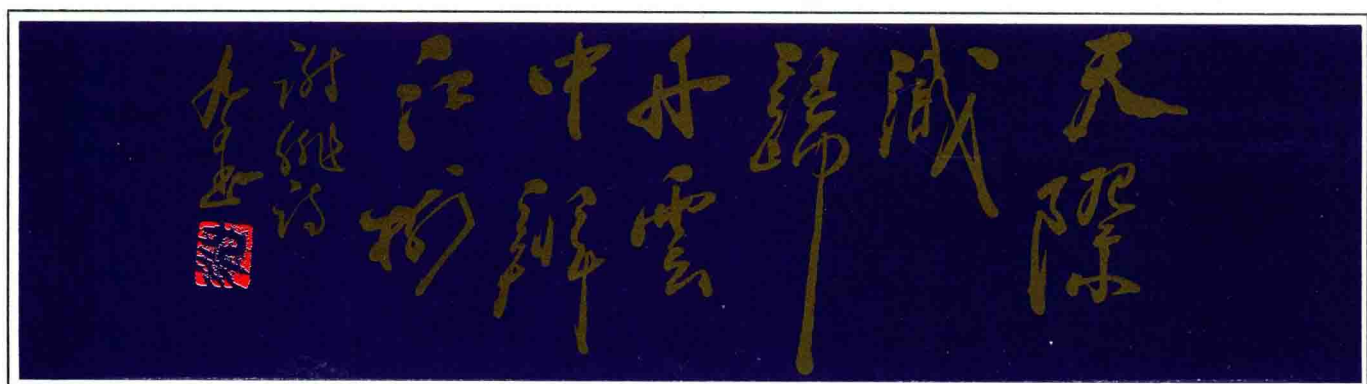 天際
識
歸
舟雲
中辨
江樹
謝朓詩
書